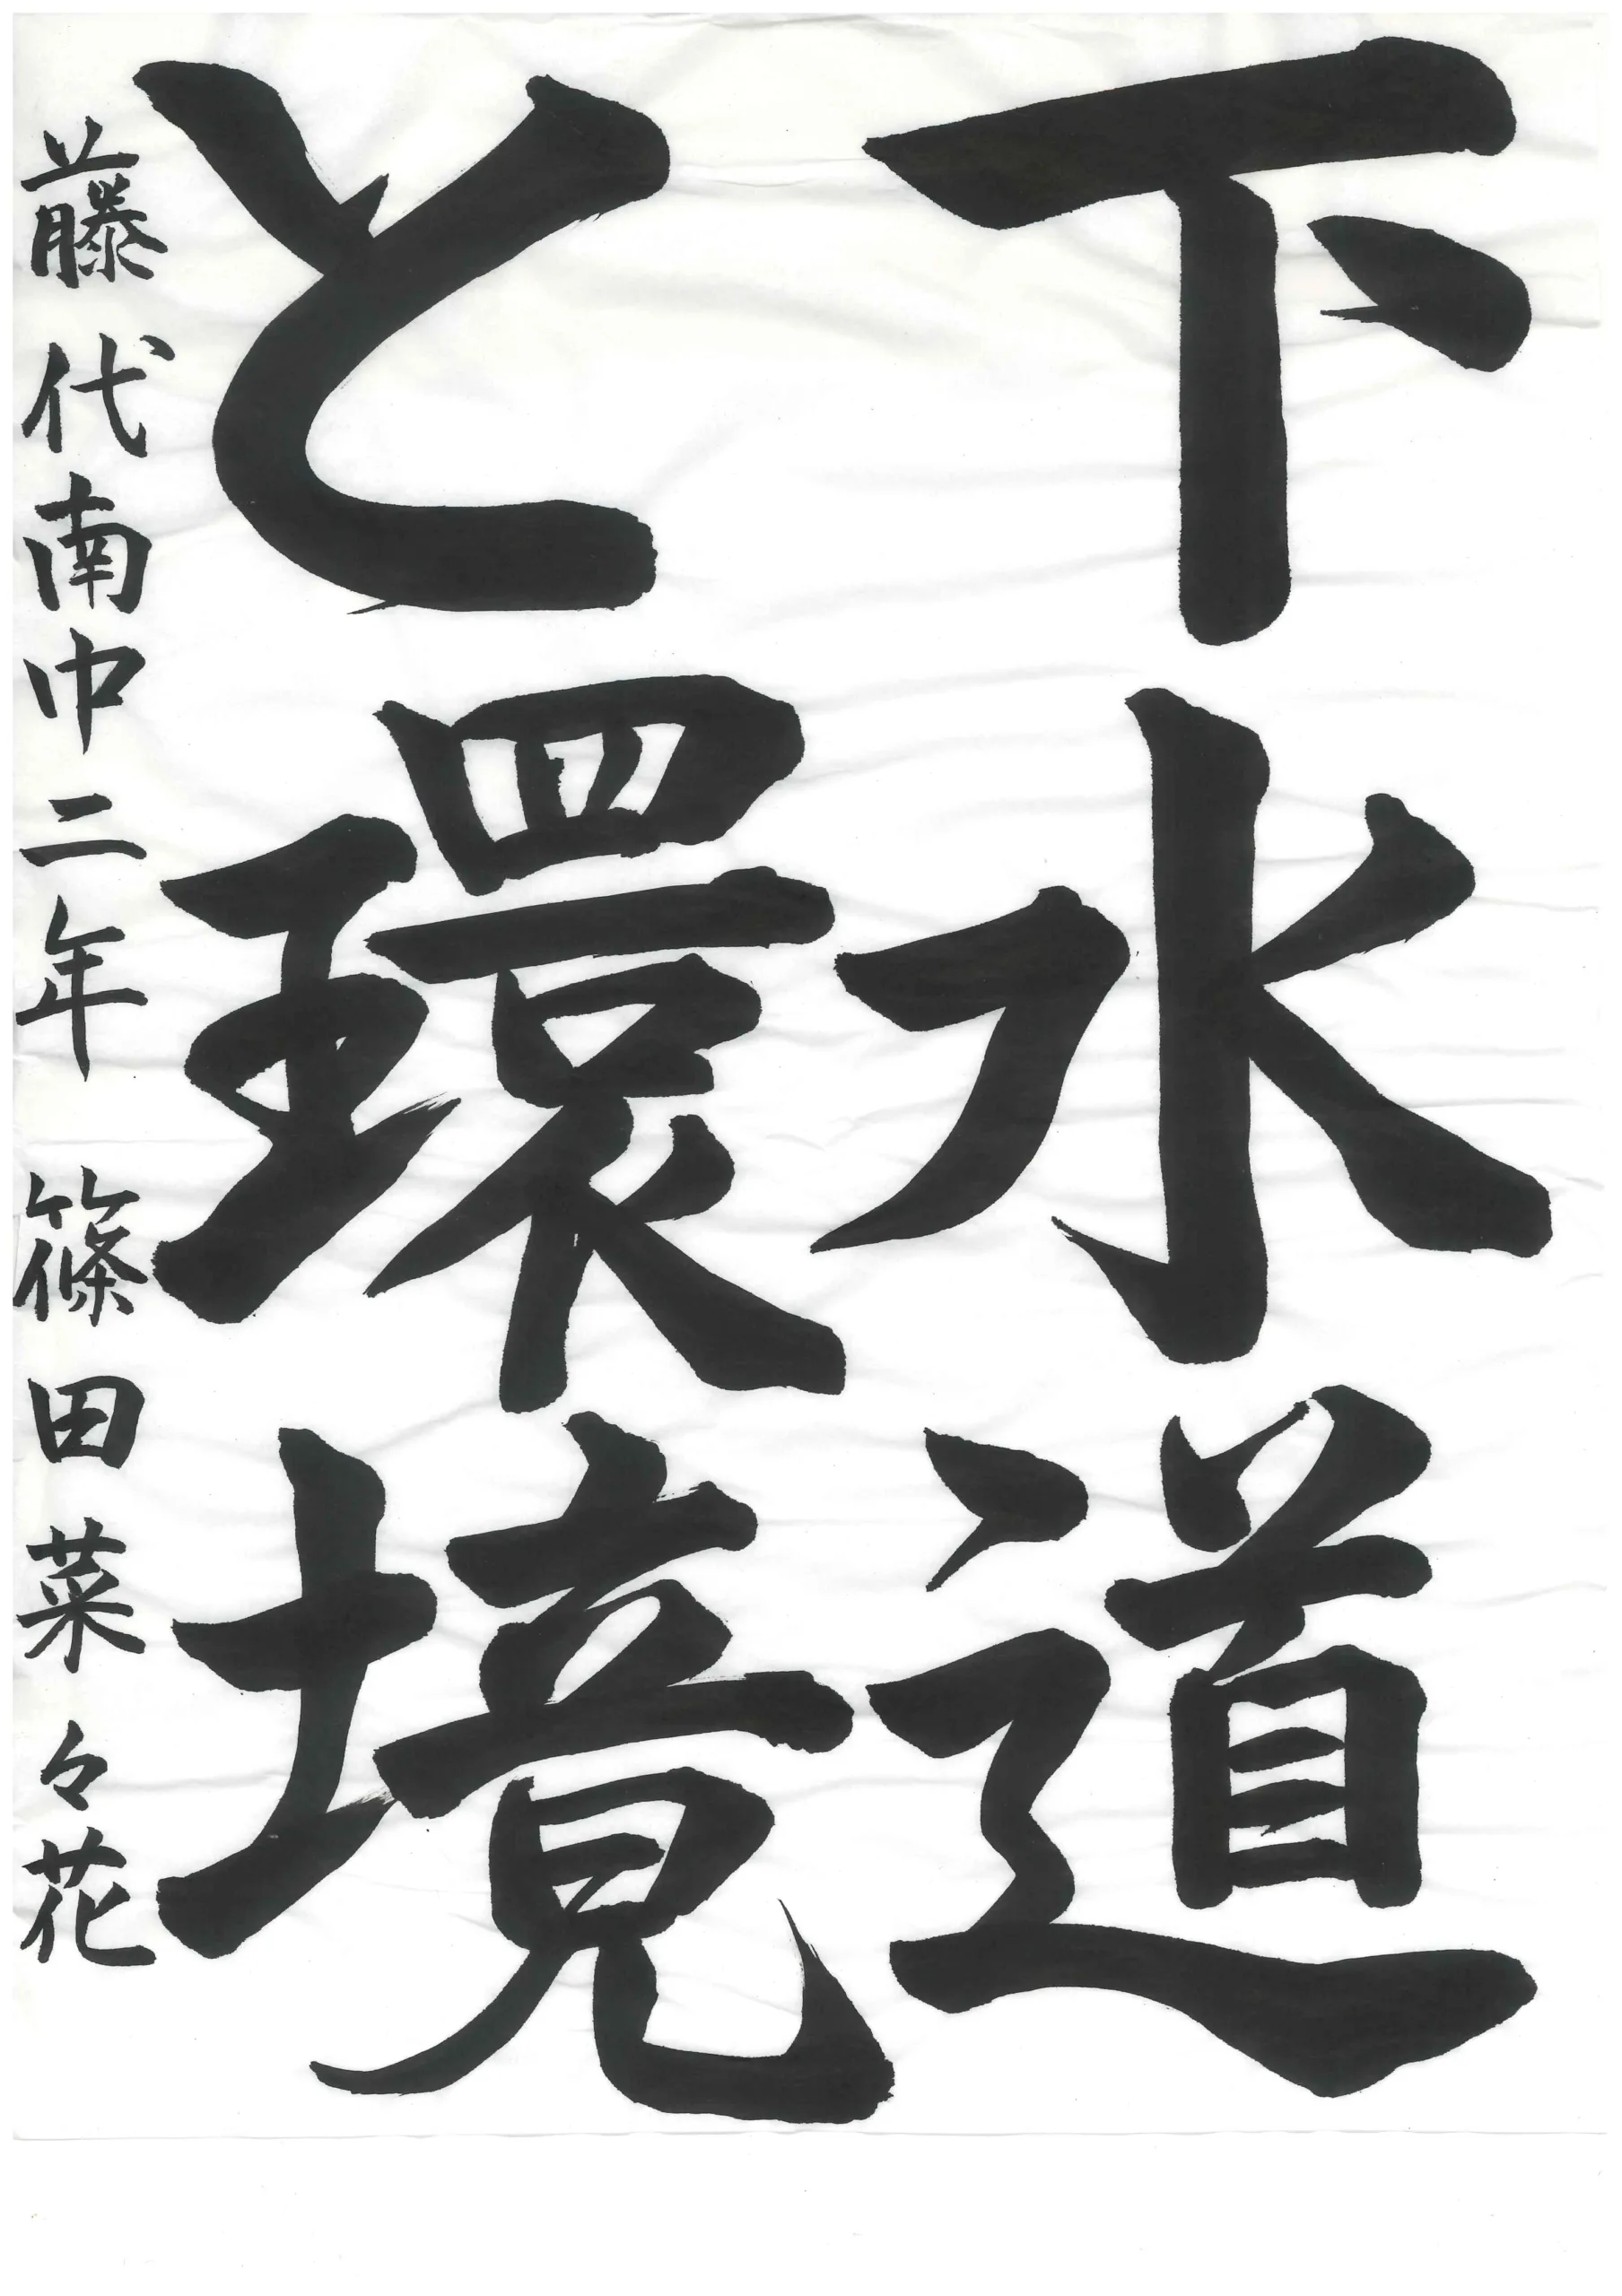 下水道
と環境
藤代南中二年 篠田菜々花